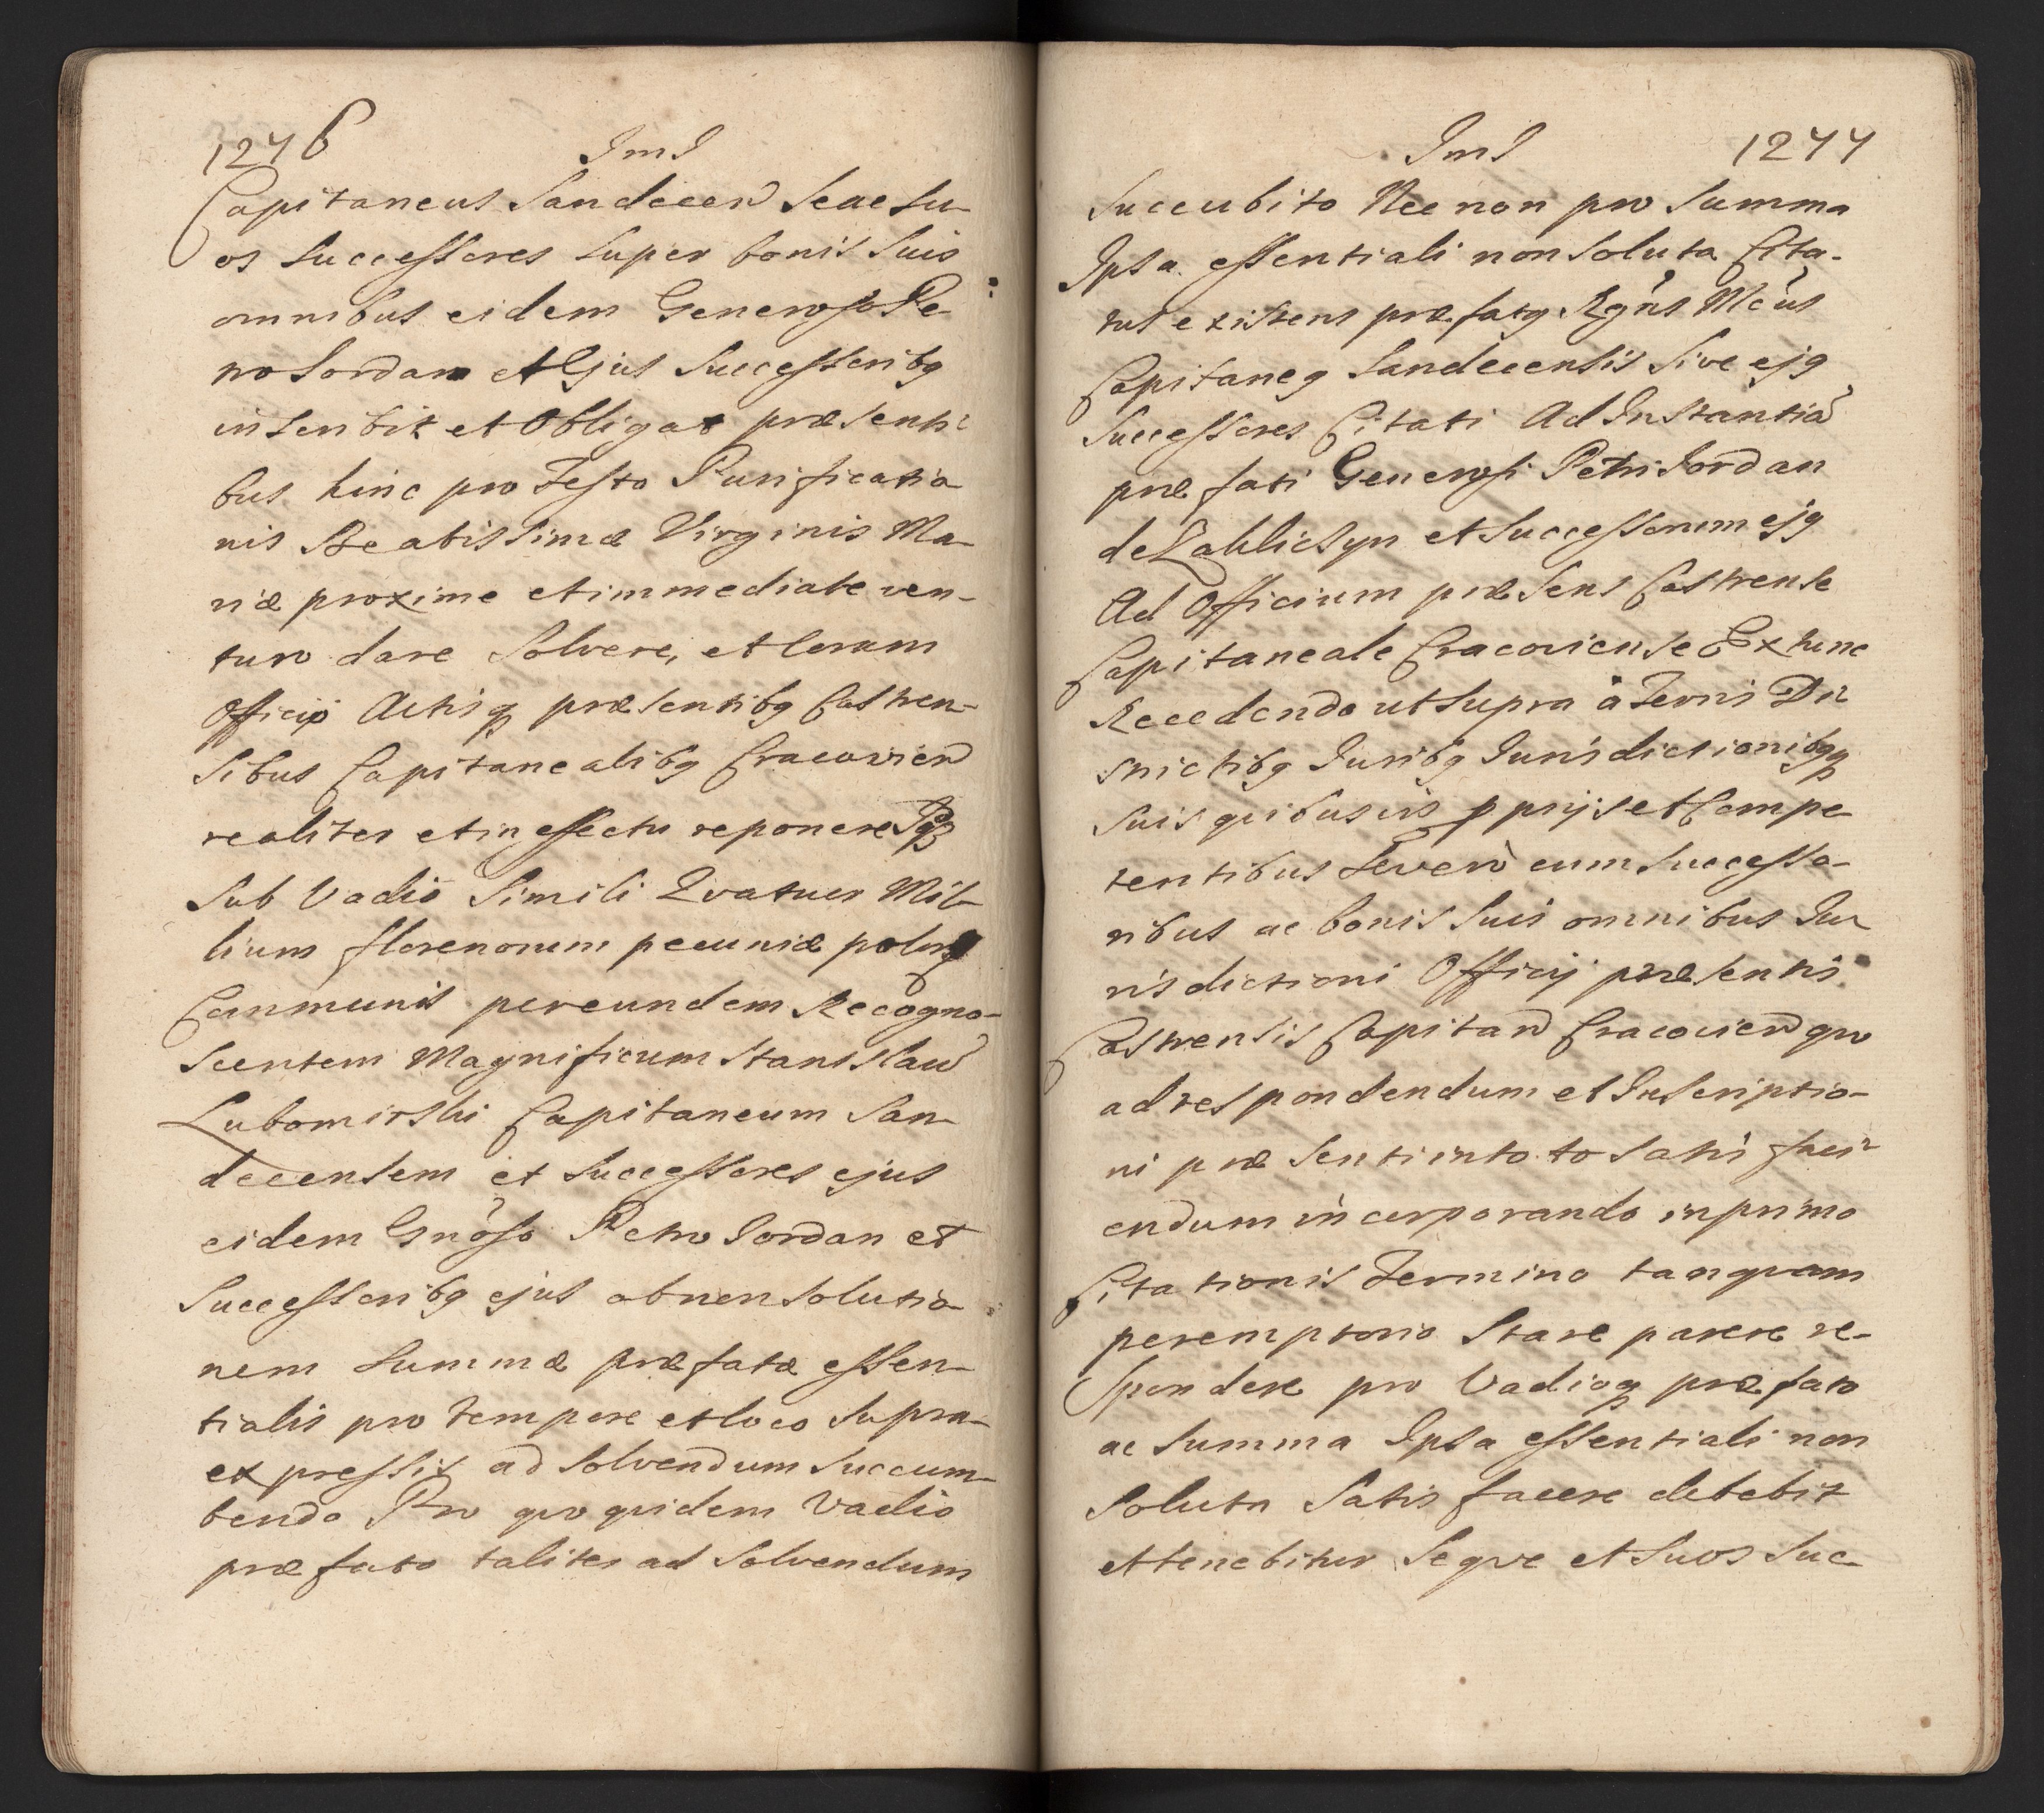 1276
JmJ
Capitaneus Sandecen Se ac Su-
os Successores super bonis suis
omnibus eidem Generoso Pe-
tro Jordan et Ejus Successoribq
inscribit et Obligat præsenti
bus hinc pro Festo Purificatio
nis Beatissimæ Virginis Ma-
riæ proxime et immediate ven-
turo dare Solvere, et Coram
Officio Actisq præsentibq Castren-
sibus Capitanealibq Cracovien
realiter et in effectu reponere Idq
Sub Vadio Simili Qvatuor Mil-
lium florenorum pecuniæ polnq
Communis per eundem Recogno-
scentem Magnificum Stanislaũ
Lubomirski Capitaneum San-
decensem et Successores ejus
eidem Gnõso Petro Jordan et
Successoribq ejus ob non solutio-
nem Summæ præfatæ essen-
tialis pro tempore et loco supra-
expressis ad solvendum succum-
bendo Pro quo quidem Vadio
præfato taliter ad solvendum
JmJ
1277
Succubito Nec non pro Summa
Ipsa essentiali non soluta Cita-
tus existens præfatq Rgñs Mcus
Capitaneq Sandecensis Sive ejq
Successores Citati Ad Instantiã
præfati Generosi Petri Jordan
de Zakliczyn et Successorum ejq
Ad Officium præsens Castrense
Capitaneale Cracoviense Ex tunc
Recedendo ut supra à Terris Di
strictibq Juribq Jurisdictionibqq
Suis quibusvis pprijs et Compe-
tentibus Se vero cum Successo-
ribus ac bonis Suis omnibus Ju-
risdictioni Officij præsentis
Castrensis Capitan Cracovien quo
ad respondendum et Inscriptio-
ni præsenti in toto satis faci-
endum incorporando in primo
Citationis Termino tanquam
peremptorio Stare parere re-
spondere pro Vadioq præfato
ac Summa Ipsa essentiali non
Soluta Satis facere debebit
et tenebitur Seque et Suos Suc-